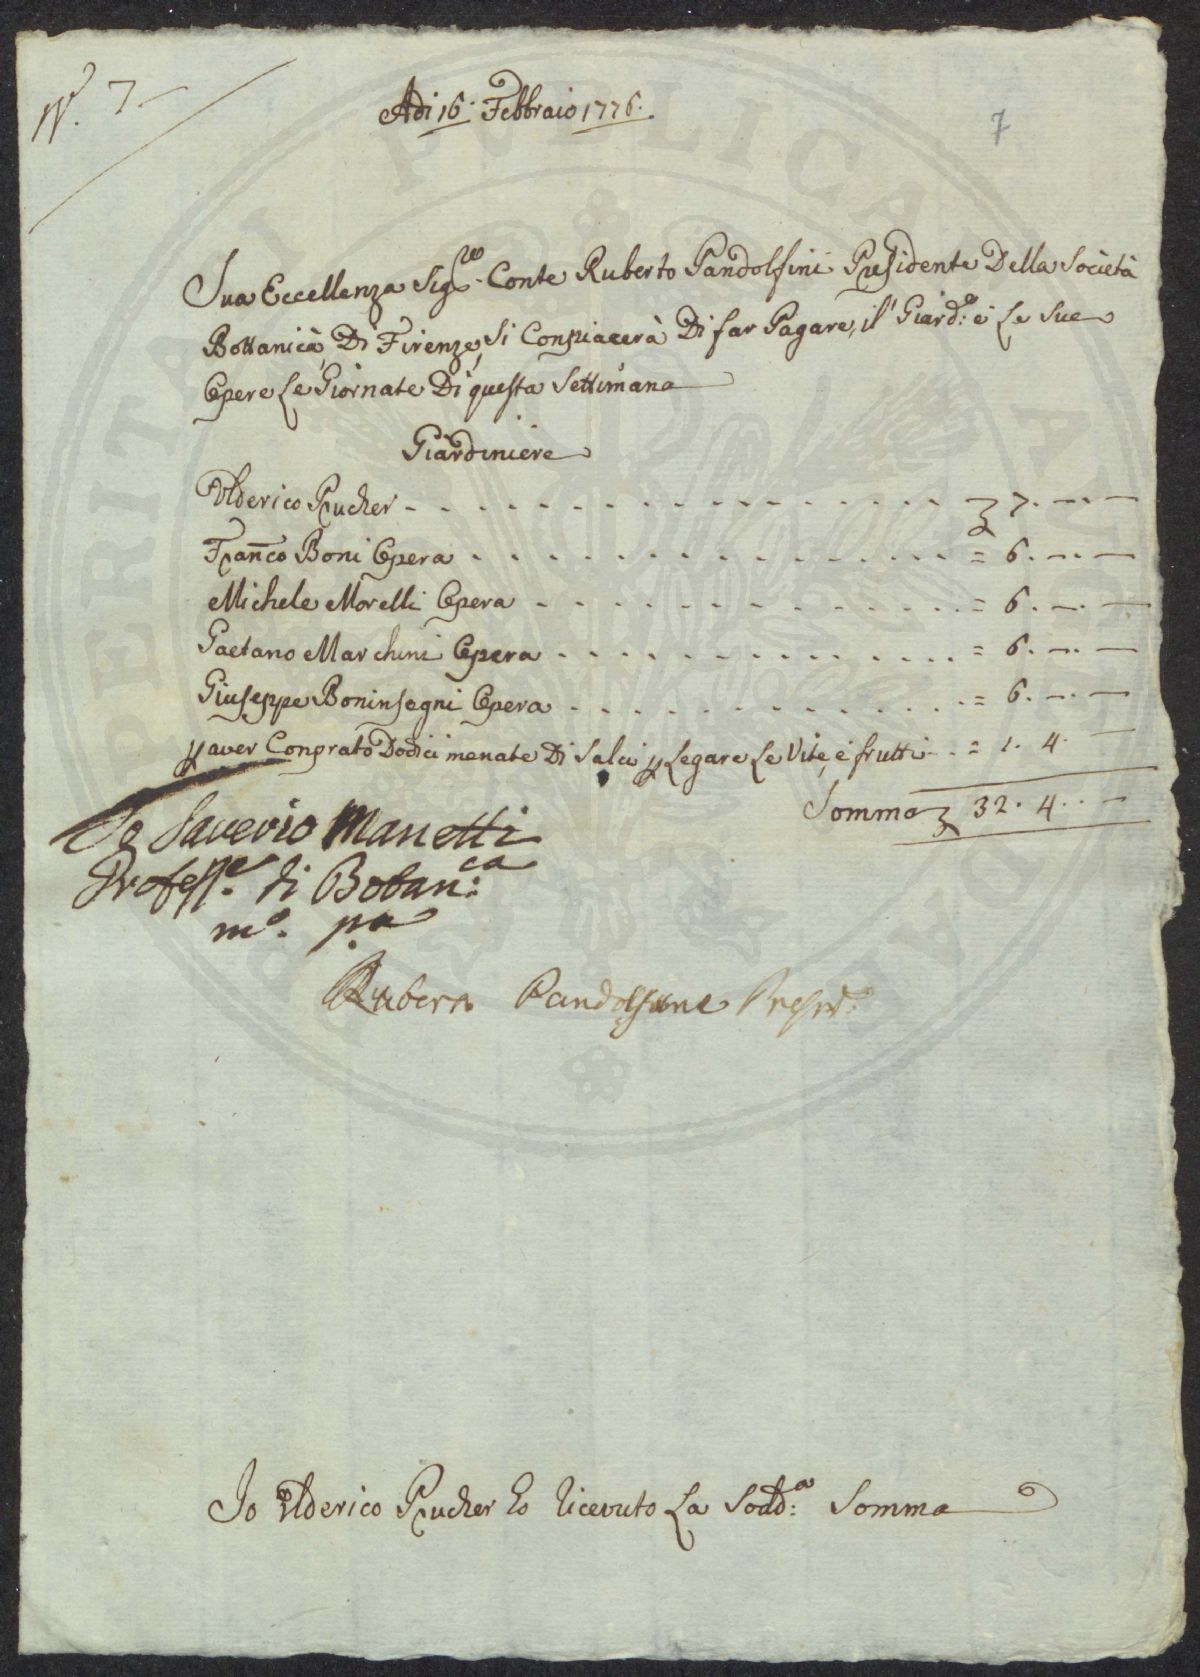 N.° 7
7
Adi 16. Febbraio 1776.
Sua Eccellenza Sig.re Conte Ruberto Pandolfini Presidente Della Società
Bottanica, Di Firenze, Si Conpiacerà Di far Pagare, il Giard.e e Le Sue
Opere Le Giornate Di questa Settimana
Giardiniere
Ulderico Prucher - - - - 7. — —
Fran.co Boni Opera - - - - = 6. — —
Michele Morelli Opera - - - - = 6. — —
Gaetano Marchini Opera - - - - = 6. — —
Giuseppe Boninsegni Opera - - - - = 6. — —
p aver Conprato Dodici menate Di Salci p Legare Le Vite, e frutti - - = 1. 4. —
Somma 32. 4. —
Io Saverio Manetti
Profess.e di Botan.ca
m.o p.a
Ruberto Pandolfini Presid.e
Io Ulderico Prucher Ho Ricevuto La Sodd.a Somma
PERITATI PVBLICAE